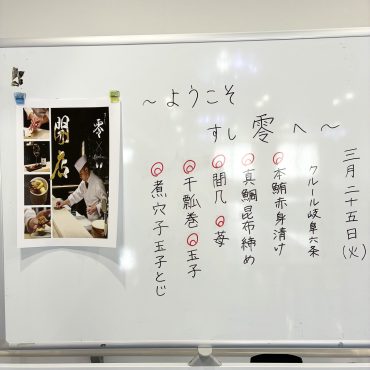 ～ようこそ
すし 零 へ～
三月二十五日(火)
クルール岐阜六条
本鮪赤身漬け
真鯛昆布締め
間八 苺
干瓢巻 玉子
煮穴子玉子とじ
零×
開店